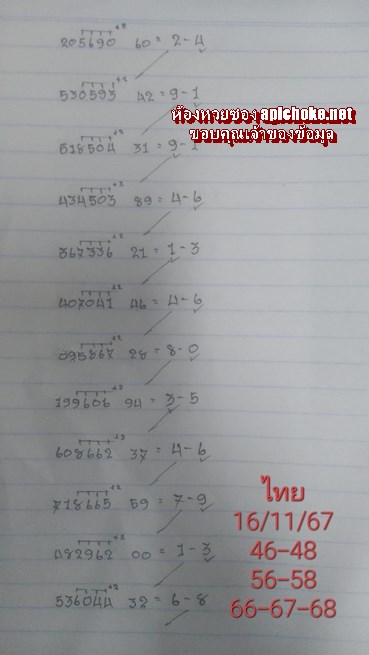 +2
205690 60 = 2-4
+2
530593 42 = 9-1
ห้องหวยซอง aplchoke.net
ขอบคุณเจ้าของข้อมูล
+2
518504 31 = 9-1
+2
434503 89 = 4-6
+2
367336 21 = 1-3
+2
407041 46 = 4-6
+2
095867 28 = 8-0
+2
199606 94 = 3-5
+2
608662 37 = 4-6
+2
718665 59 = 7-9
+2
482962 00 = 1-3
+2
536044 32 = 6-8
ไทย
16/11/67
46-48
56-58
66-67-68